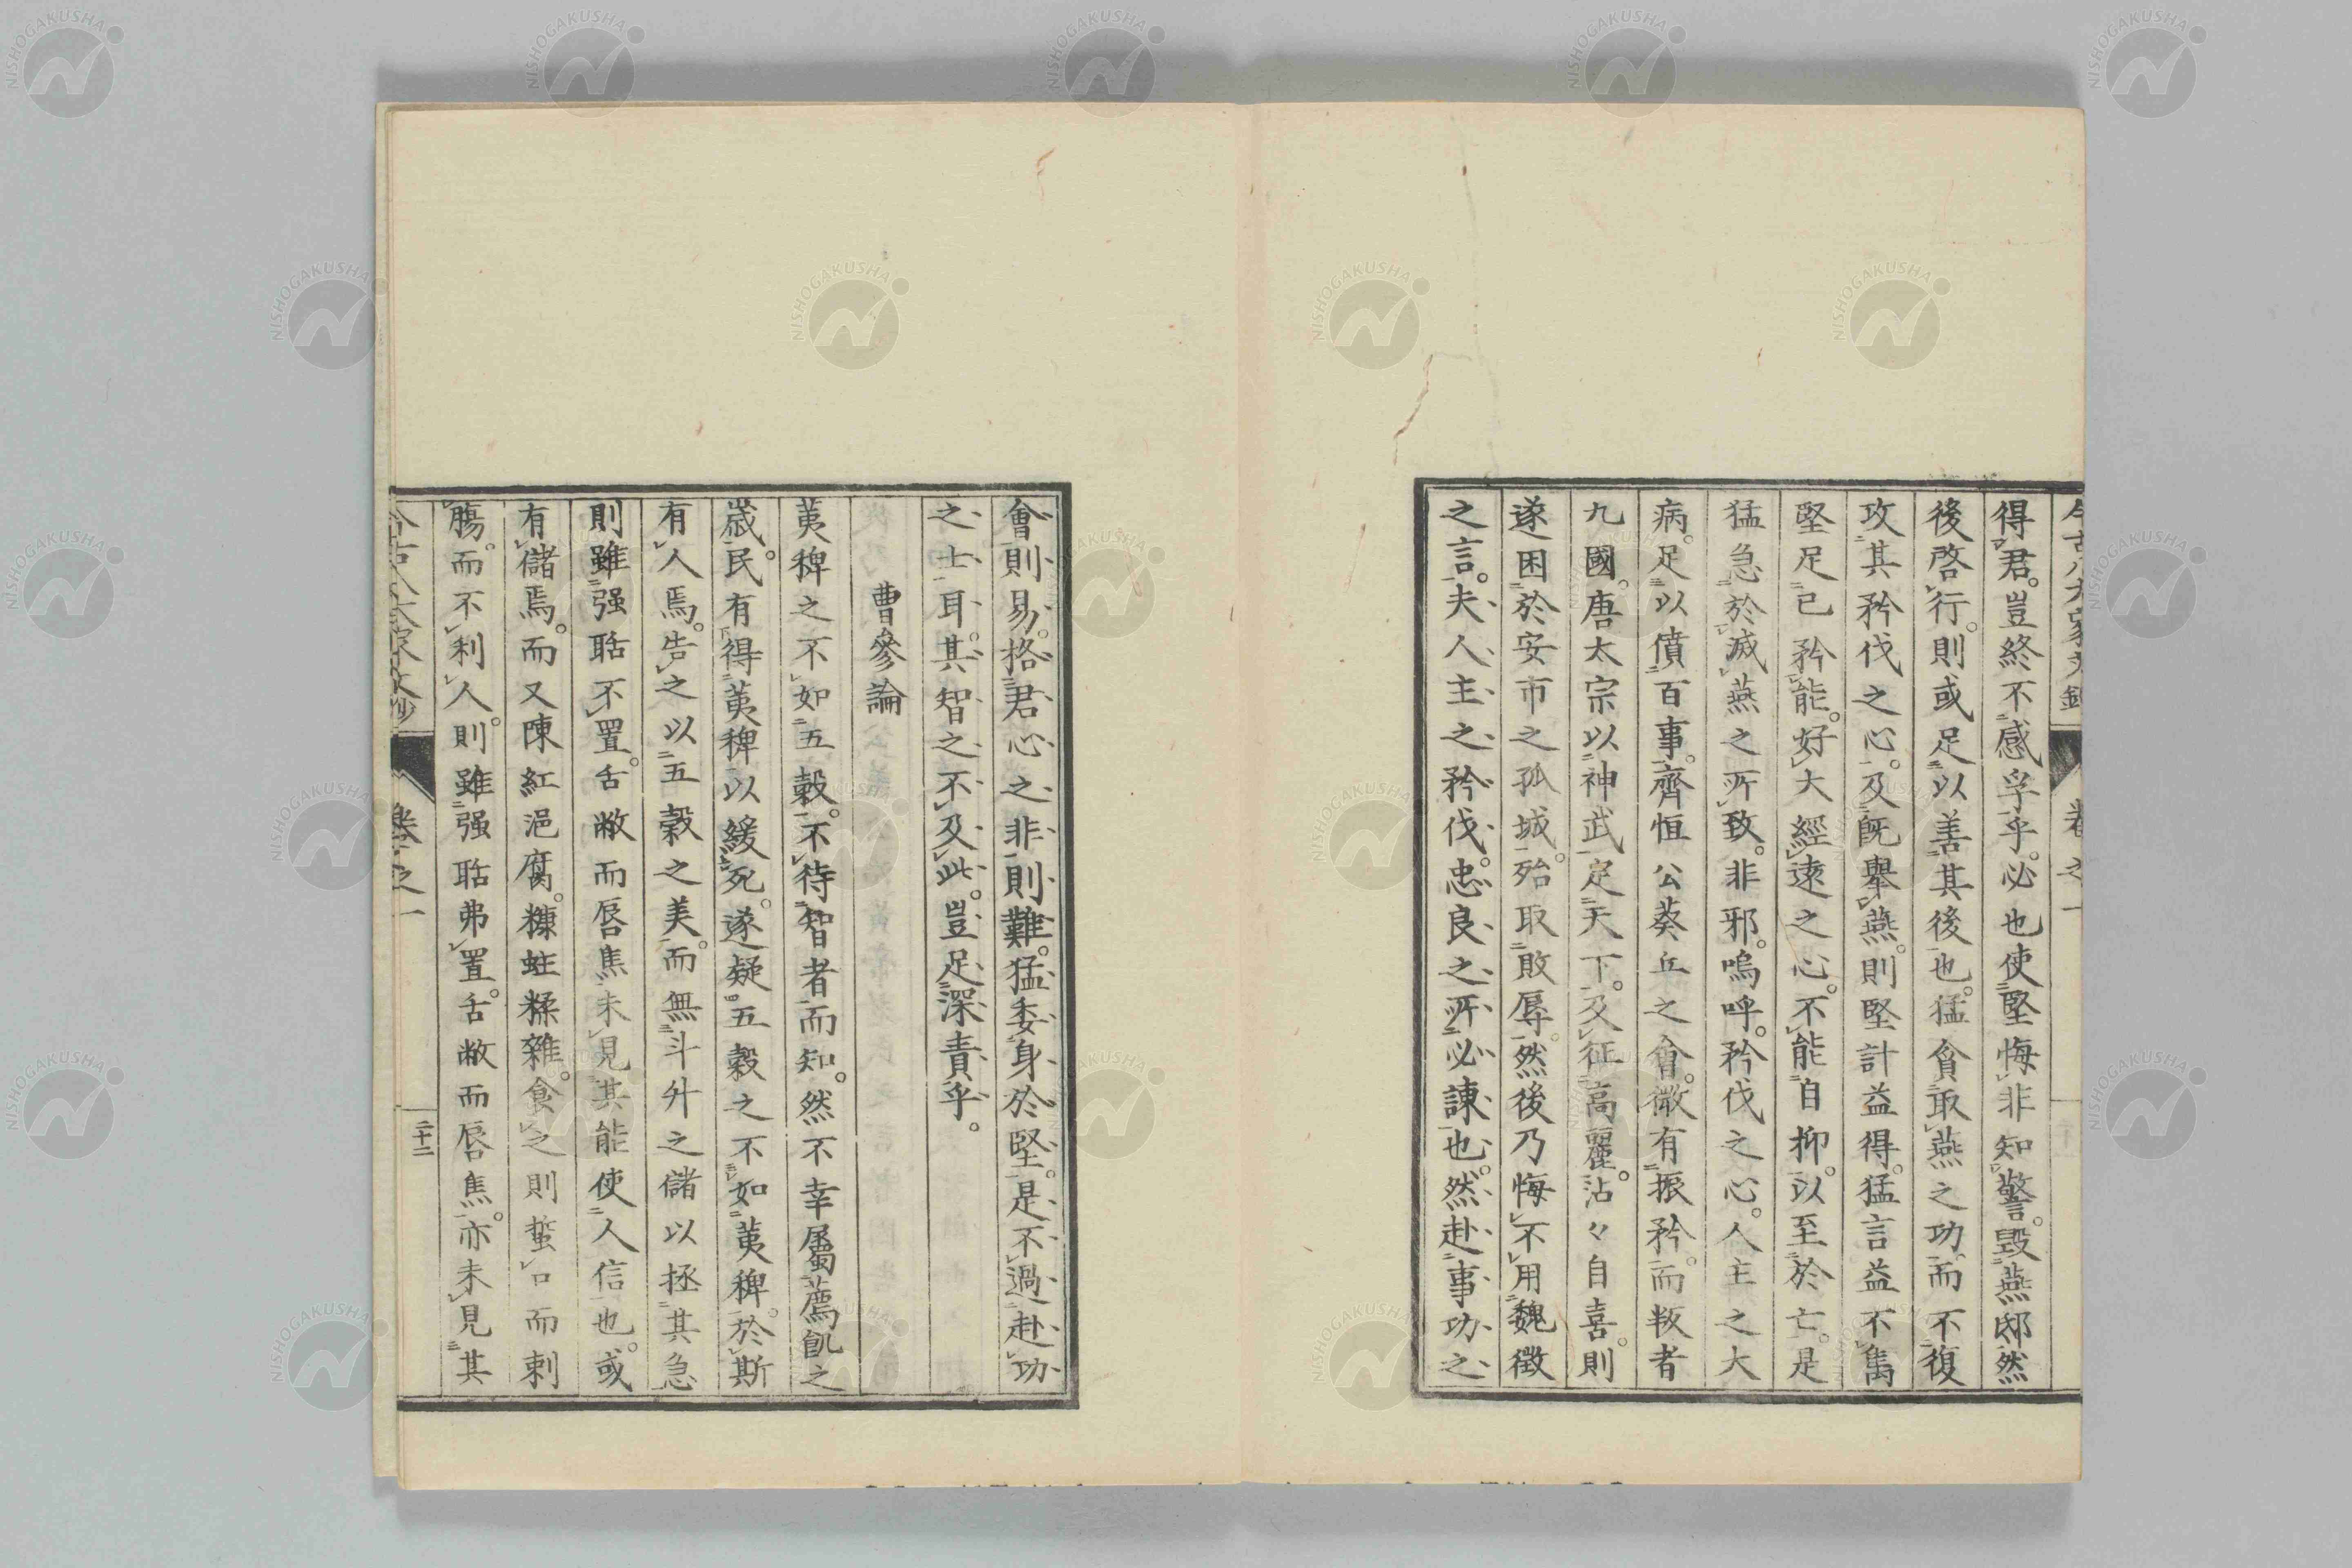 得君。豈終不感孚乎。必也使堅悔非知警。毀燕鄁然
後啓行。則或足以善其後也。猛貪取燕之功。而不復
攻其矜伐之心。及既舉燕。則堅計益得。猛言益不雋
堅足已矜能。好大經遠之心。不能自抑。以至於亡。是
猛急於滅燕之所致。非邪。嗚呼。矜伐之心。人主之大
病。足以僨百事。齊恒公葵丘之會。微有振矜。而叛者
九國。唐太宗以神武定天下。及征高麗。沾々自喜。則
遂困於安市之孤城。殆取敗辱。然後乃悔不用魏徴
之言。夫人主之矜伐。忠良之所必諫也。然赴事功之
會則易。格君心之非則難。猛委身於堅。是不過赴功
之士耳。其智之不及此。豈足深責乎。
曹參論
荑稗之不如五穀。不待智者而知。然不幸屬薦飢之
歳。民有得荑稗以緩死。遂疑五穀之不如荑稗。於斯
有人焉。告之以五穀之美。而無斗升之儲以拯其急
則雖强聒不置。舌敝而唇焦。未見其能使人信也。或
有儲焉。而又陳紅浥腐。糠蛀糅雜。食之則蜇口而刺
腸。而不利人。則雖强聒弗置。舌敝而唇焦。亦未見其
卷之一
二十二
NISHOGAKUSHA